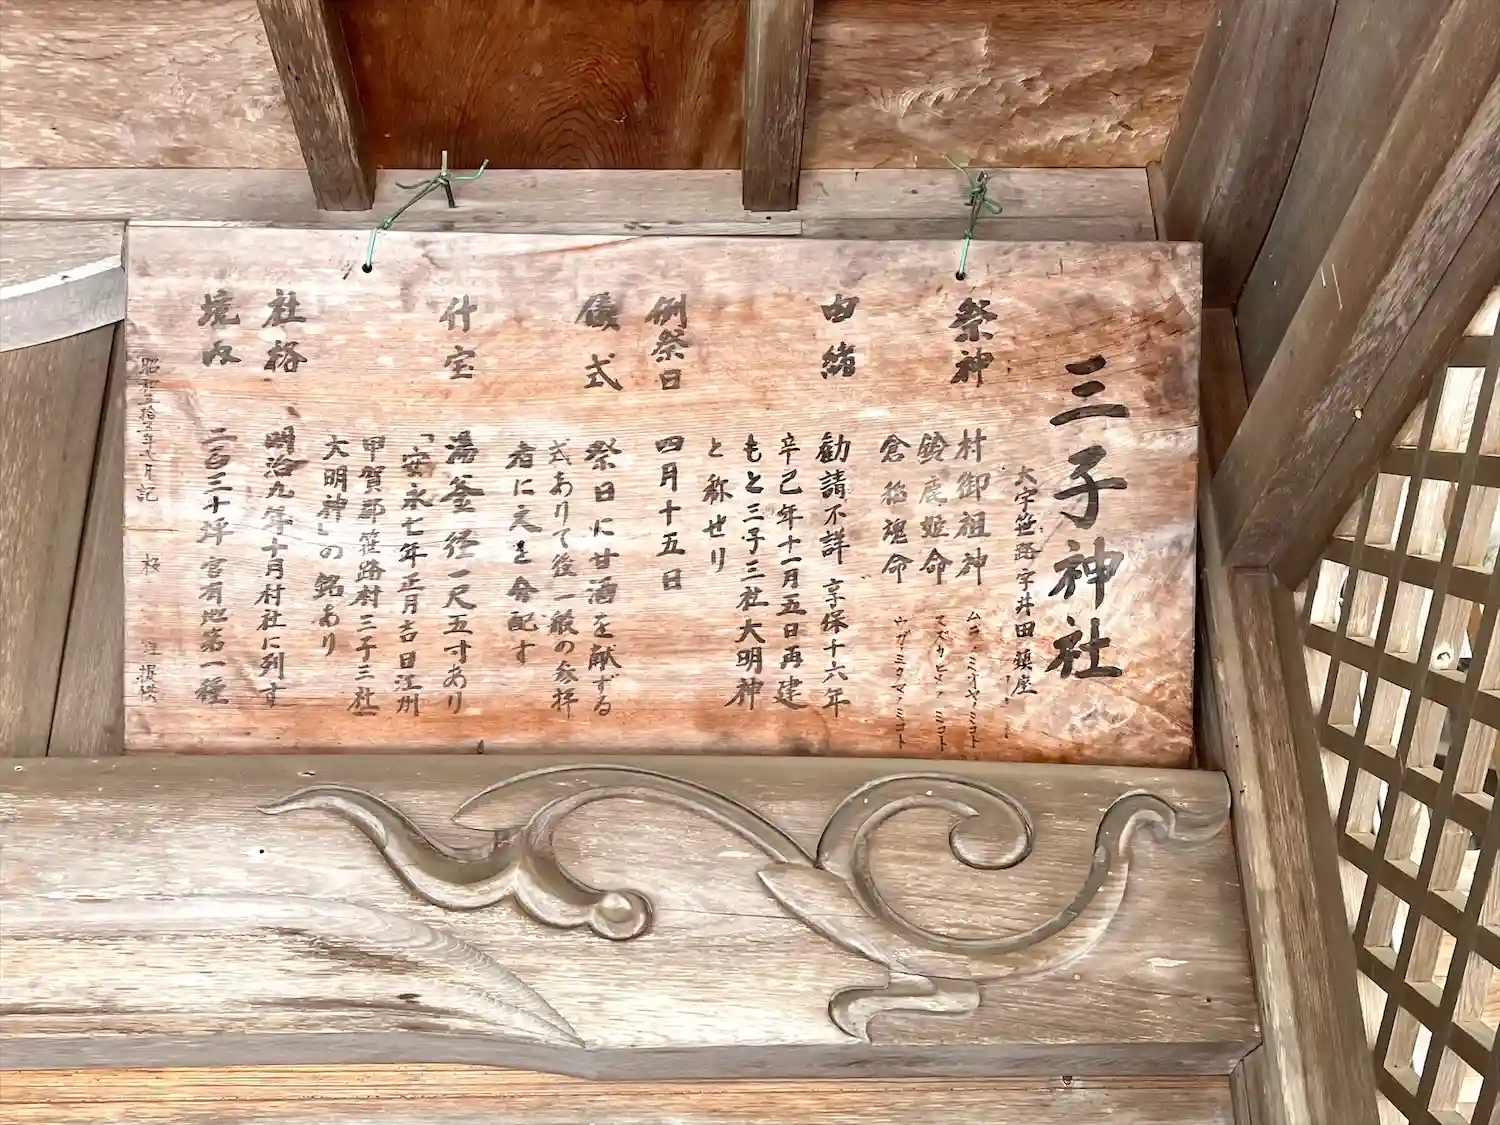 三子神社
大字笹路字井田鎮座
祭神 村御祖神 ムラノミオヤノミコト
鈴鹿姫命 スズカヒメノミコト
倉稲魂命 ウガノミタマノミコト
由緒 勧請不詳 享保十六年
辛己年十一月五日再建
もと三子三社大明神
と称せり
例祭日 四月十五日
儀式 祭日に甘酒を献ずる
式ありて後一般の参拝
者に之を分配す
什宝 湯釜 径一尺五寸あり
「安永七年正月吉日江州
甲賀郡笹路村三子三社
大明神」の銘あり
社格 明治九年十月村社に列す
境内 二百三十坪 官有地第一種
昭和五拾 年 月記